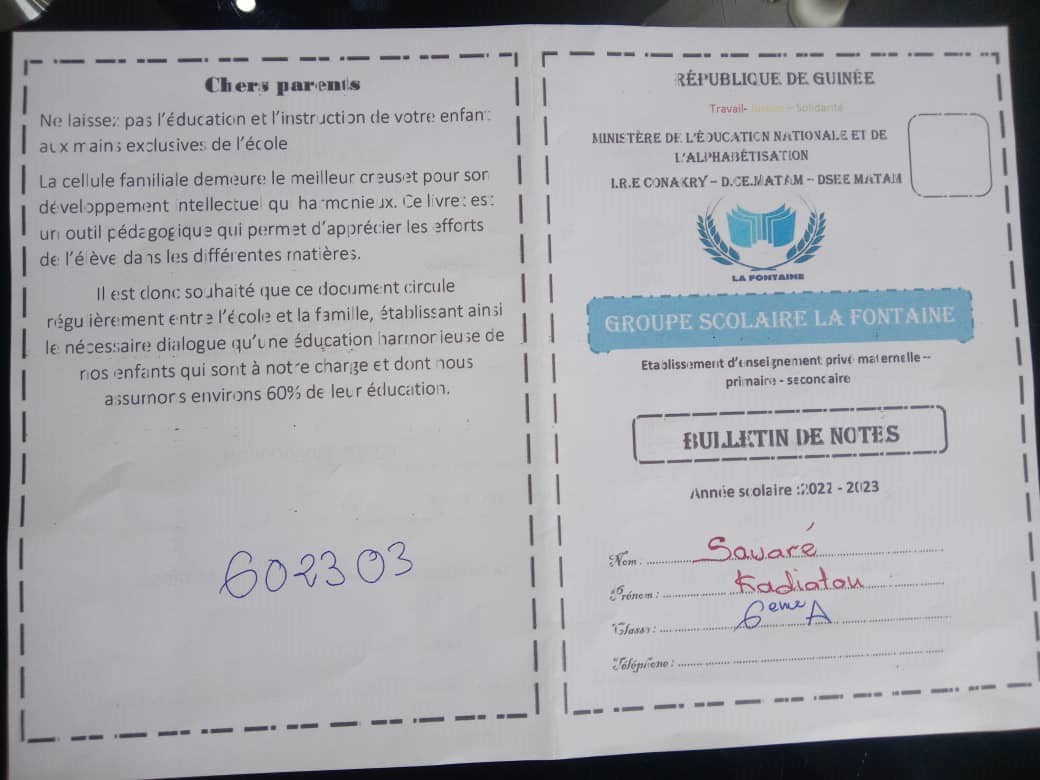 Chers parents
Ne laissez pas l'éducation et l'instruction de votre enfant
aux mains exclusives de l'école
La cellule familiale demeure le meilleur creuset pour son
développement intellectuel qu harmonieux. Ce livret est
un outil pédagogique qui permet d'apprécier les efforts
de l'élève dans les différentes matières.
Il est donc souhaité que ce document circule
régulièrement entre l'école et la famille, établissant ainsi
le nécessaire dialogue qu'une éducation harmonieuse de
nos enfants qui sont à notre charge et dont nous
assumons environs 60% de leur éducation.
602303
RÉPUBLIQUE DE GUINÉE
Travail- Justice – Solidarité
MINISTÈRE DE L'ÉDUCATION NATIONALE ET DE
L'ALPHABÉTISATION
I.R.E CONAKRY – D.CE.MATAM – DSEE MATAM
LA FONTAINE
GROUPE SCOLAIRE LA FONTAINE
Etablissement d'enseignement privé maternelle –
primaire - secondaire
BULLETIN DE NOTES
Année scolaire :2022 - 2023
Nom : Savaré
Prénom : Kadiatou
Classe : 6eme A
Téléphone :